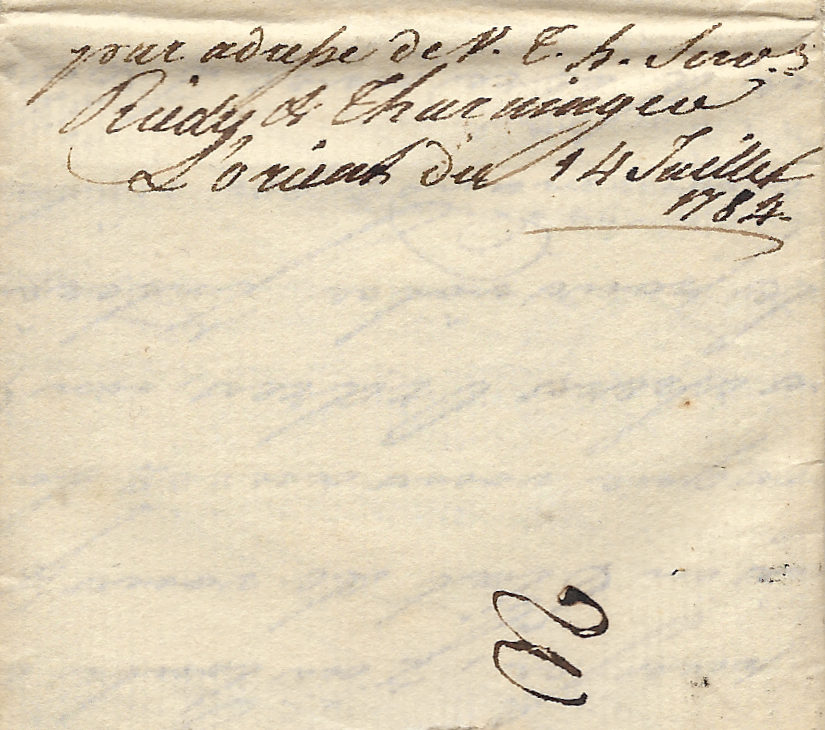 pour adresse de V. T. h. Serv.rs
Riedy & Thurninger
L'orient du 14 Juillet
1784.